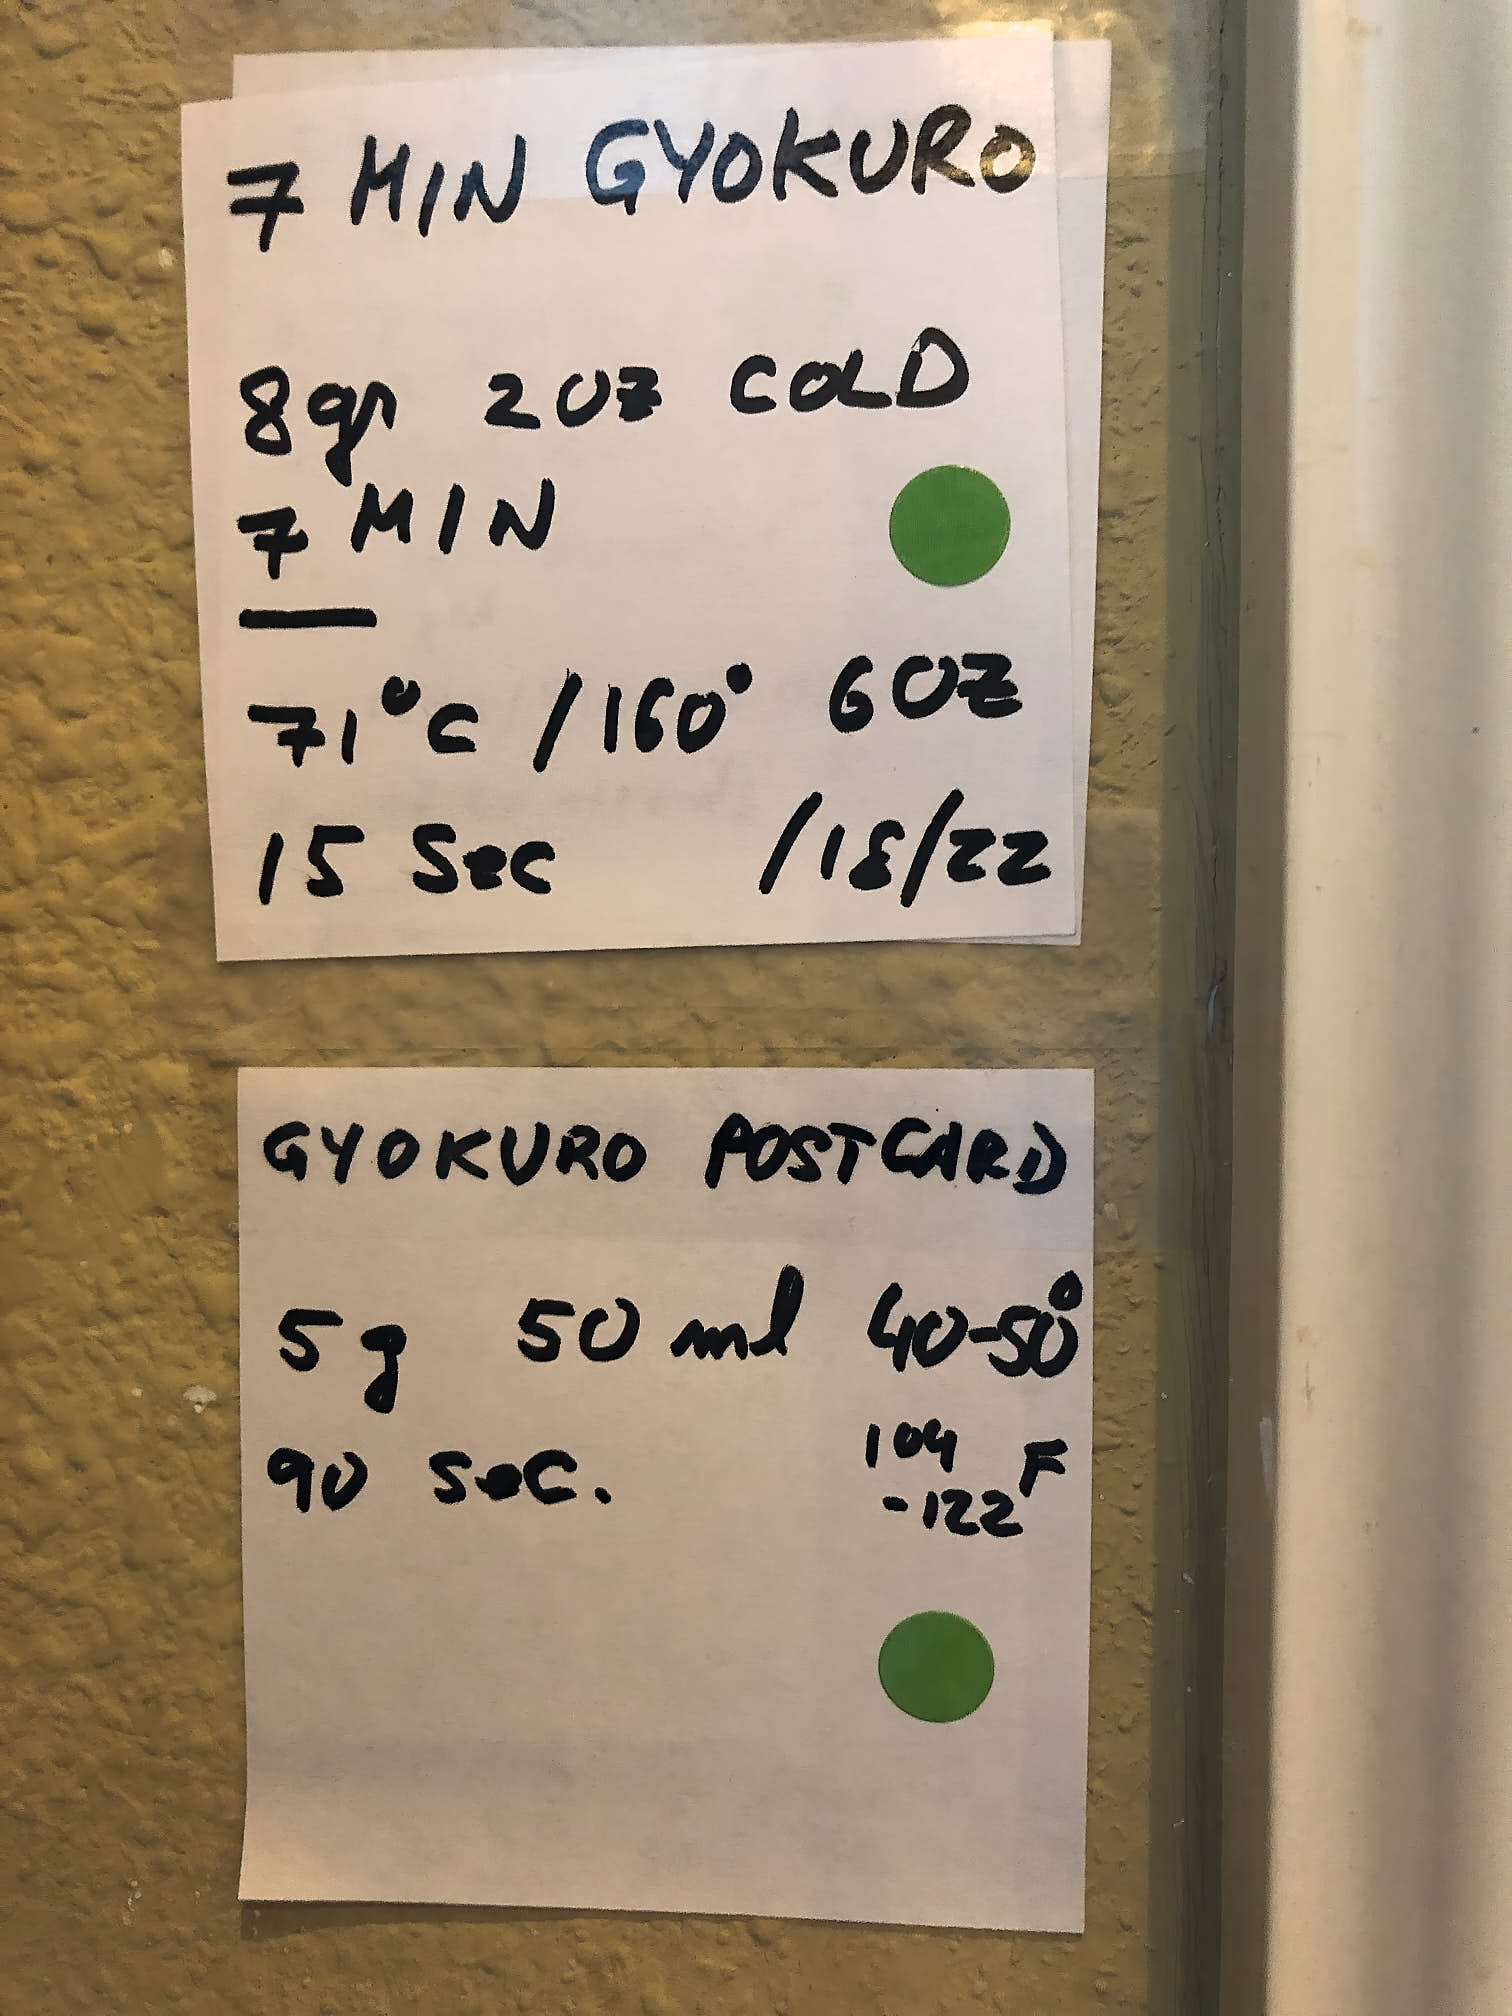 7 MIN GYOKURO
8gr 2OZ COLD
7 MIN
71°C /160° 6OZ
15 Sec /18/22
GYOKURO POSTCARD
5g 50 ml 40-50°
90 sec. 104 F
-122